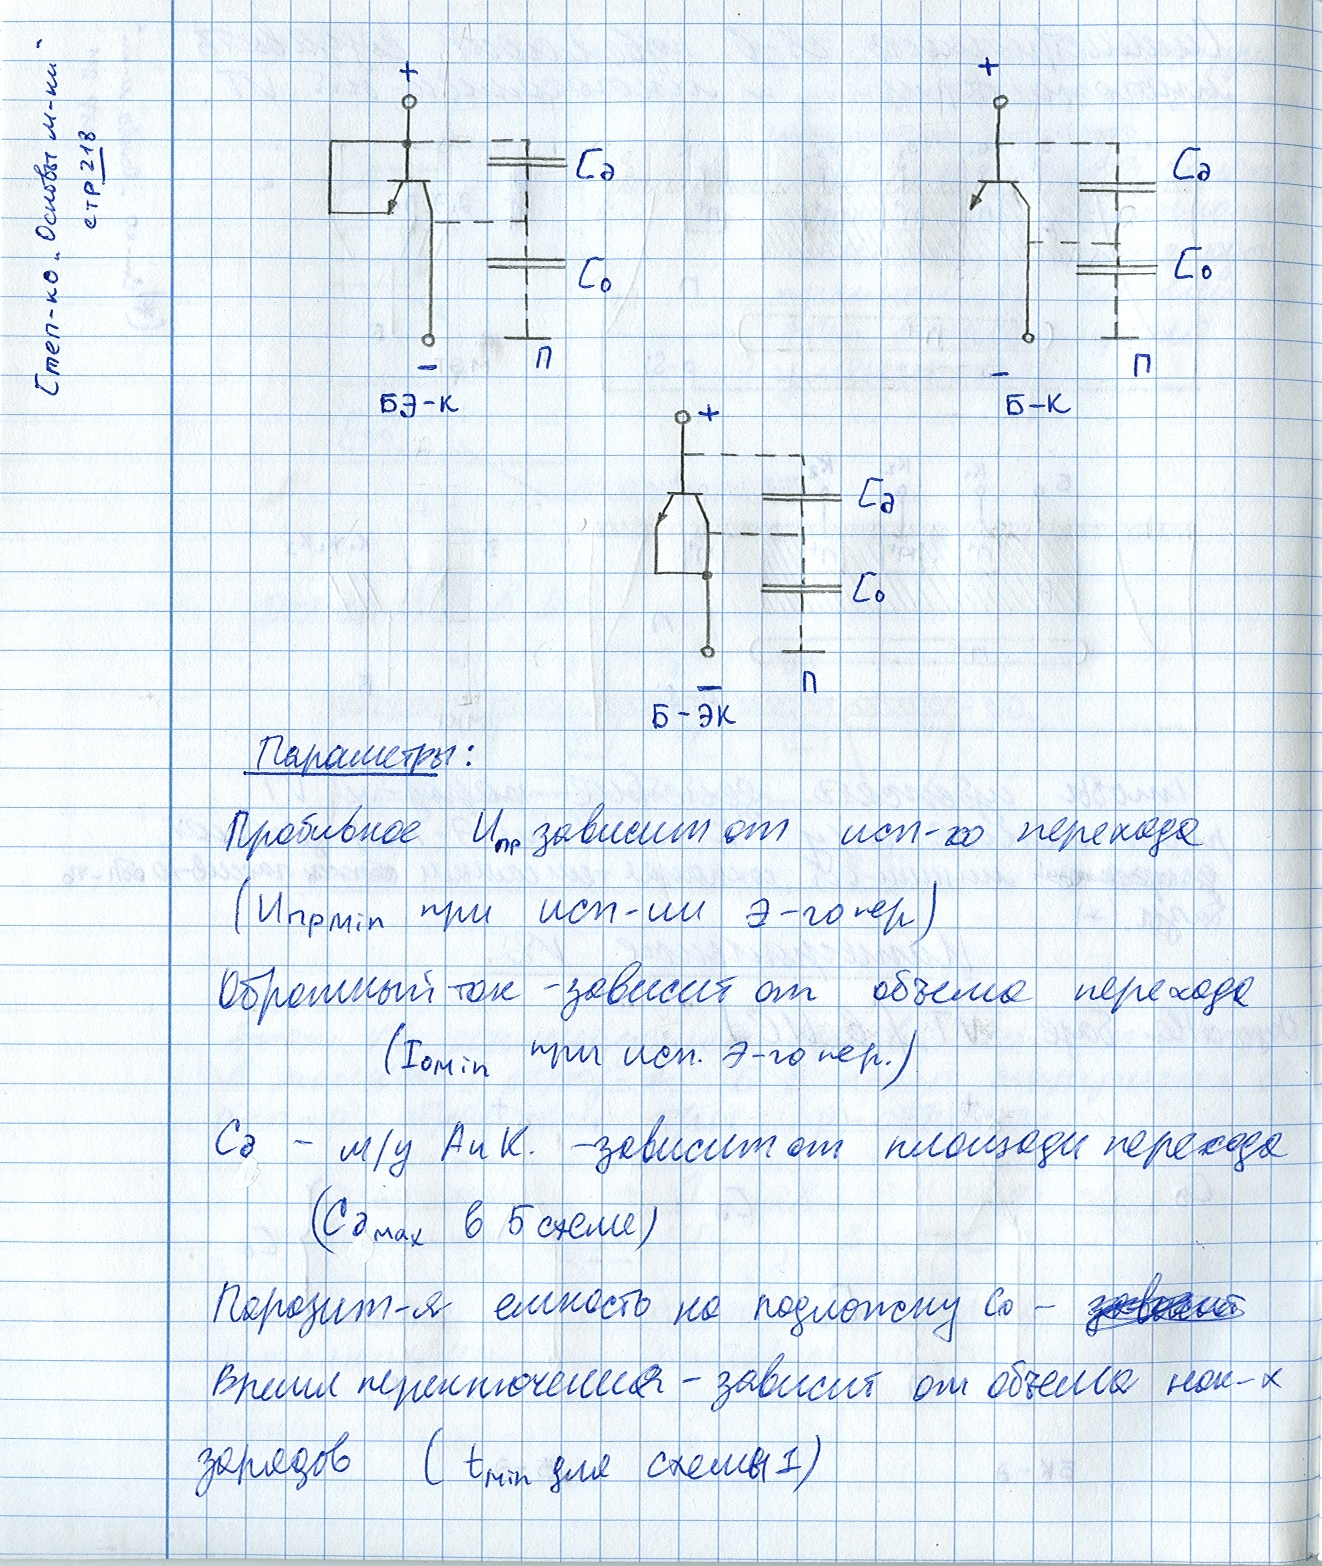 Степ-ко „Основы м-ки"
стр 218
+
Cд
Cо
−
П
БЭ-К
+
Cд
Cо
−
П
Б-К
+
Cд
Cо
−
П
Б-ЭК
Параметры:
Пробивное Uпр зависит от исп-го перехода
(Uпрmin при исп-ии Э-го пер)
Обратный ток - зависит от объема перехода
(Iоmin при исп. Э-го пер.)
Cд - м/у А и К. - зависит от площади перехода
(Cдmax в 5 схеме)
Паразит-я емкость на подложку Cо -
Время переключения - зависит от объема нак-х
зарядов (tmin для схемы 1)